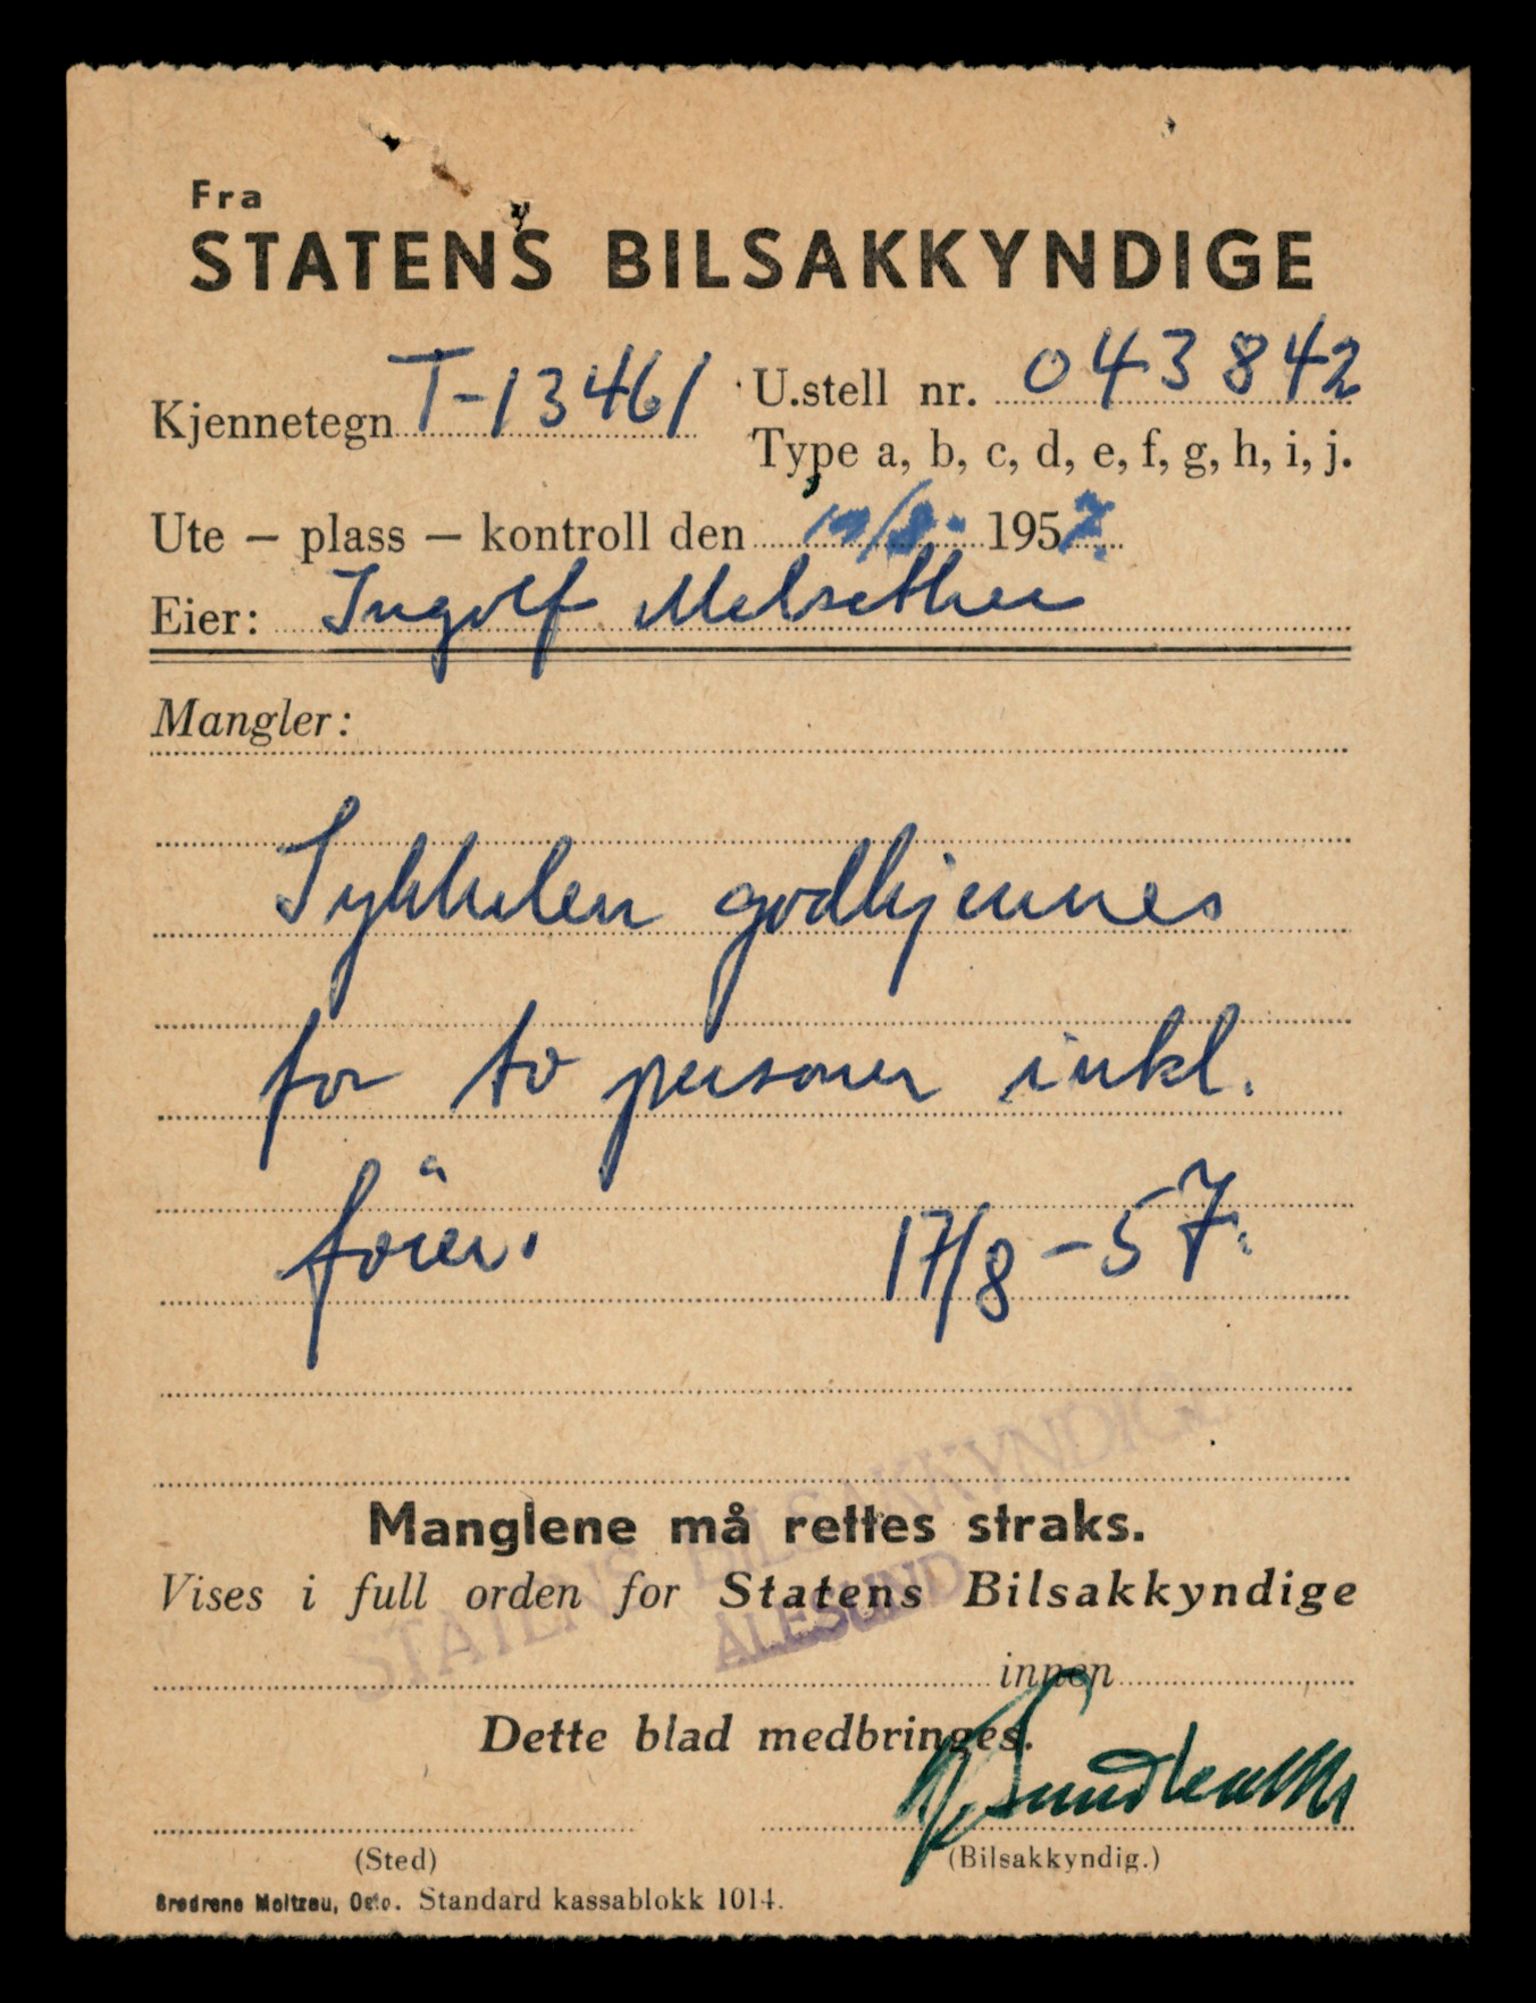 Fra
STATENS BILSAKKYNDIGE
Kjennetegn T-13461 U.stell nr. 043842
Type a, b, c, d, e, f, g, h, i, j.
Ute – plass – kontroll den 1957
Eier: Ingolf Melsether
Mangler:
Sykkelen godkjennes
for to personer inkl.
förer. 17/8-57.
STATENS BILSAKKYNDIGE
ÅLESUND
Manglene må rettes straks.
Vises i full orden for Statens Bilsakkyndige
innen
Dette blad medbringes.
(Sted) (Bilsakkyndig.)
Brødrene Moltzau, Oslo. Standard kassablokk 1014.